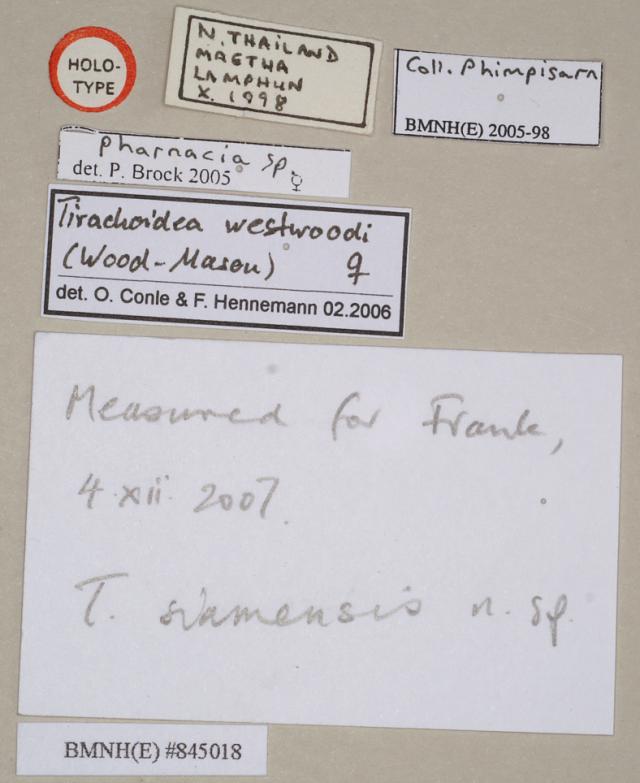 HOLO-
TYPE
N. THAILAND
MAETHA
LAMPHUN
X. 1998
Coll. Phimpisarn
BMNH(E) 2005-98
Pharnacia sp. ♀
det. P. Brock 2005
Tirachoidea westwoodi
(Wood-Mason) ♀
det. O. Conle & F. Hennemann 02.2006
Measured for Frank,
4.xii.2007.
T. siamensis n. sp.
BMNH(E) #845018